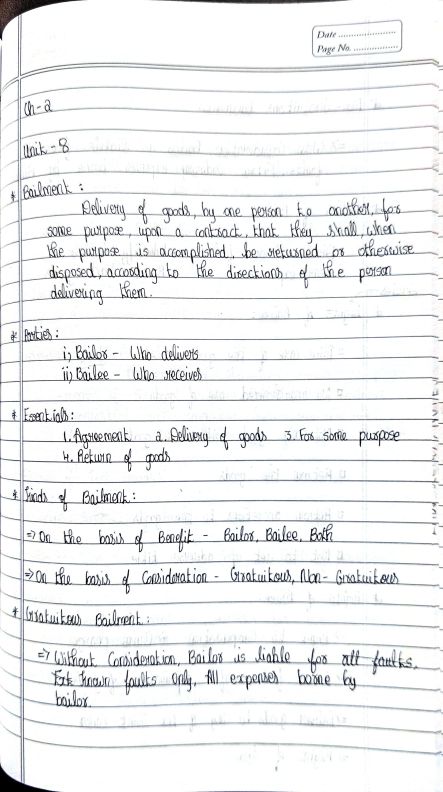 Date ........................
Page No. .................
Ch-2
Unit - 8
* Bailment :
Delivery of goods, by one person to another, for
some purpose, upon a contract, that they shall, when
the purpose is accomplished, be returned or otherwise
disposed, according to the directions of the person
delivering them.
* Parties :
i) Bailor - Who delivers
ii) Bailee - Who receives
* Essentials :
1. Agreement 2. Delivery of goods 3. For some purpose
4. Return of goods
* Kinds of Bailment :
⇒ On the basis of Benefit - Bailor, Bailee, Both
⇒ On the basis of Consideration - Gratuitous, Non-Gratuitous
* Gratuitous Bailment :
⇒ Without Consideration, Bailor is liable for all faults.
For known faults only, All expenses borne by
bailor.